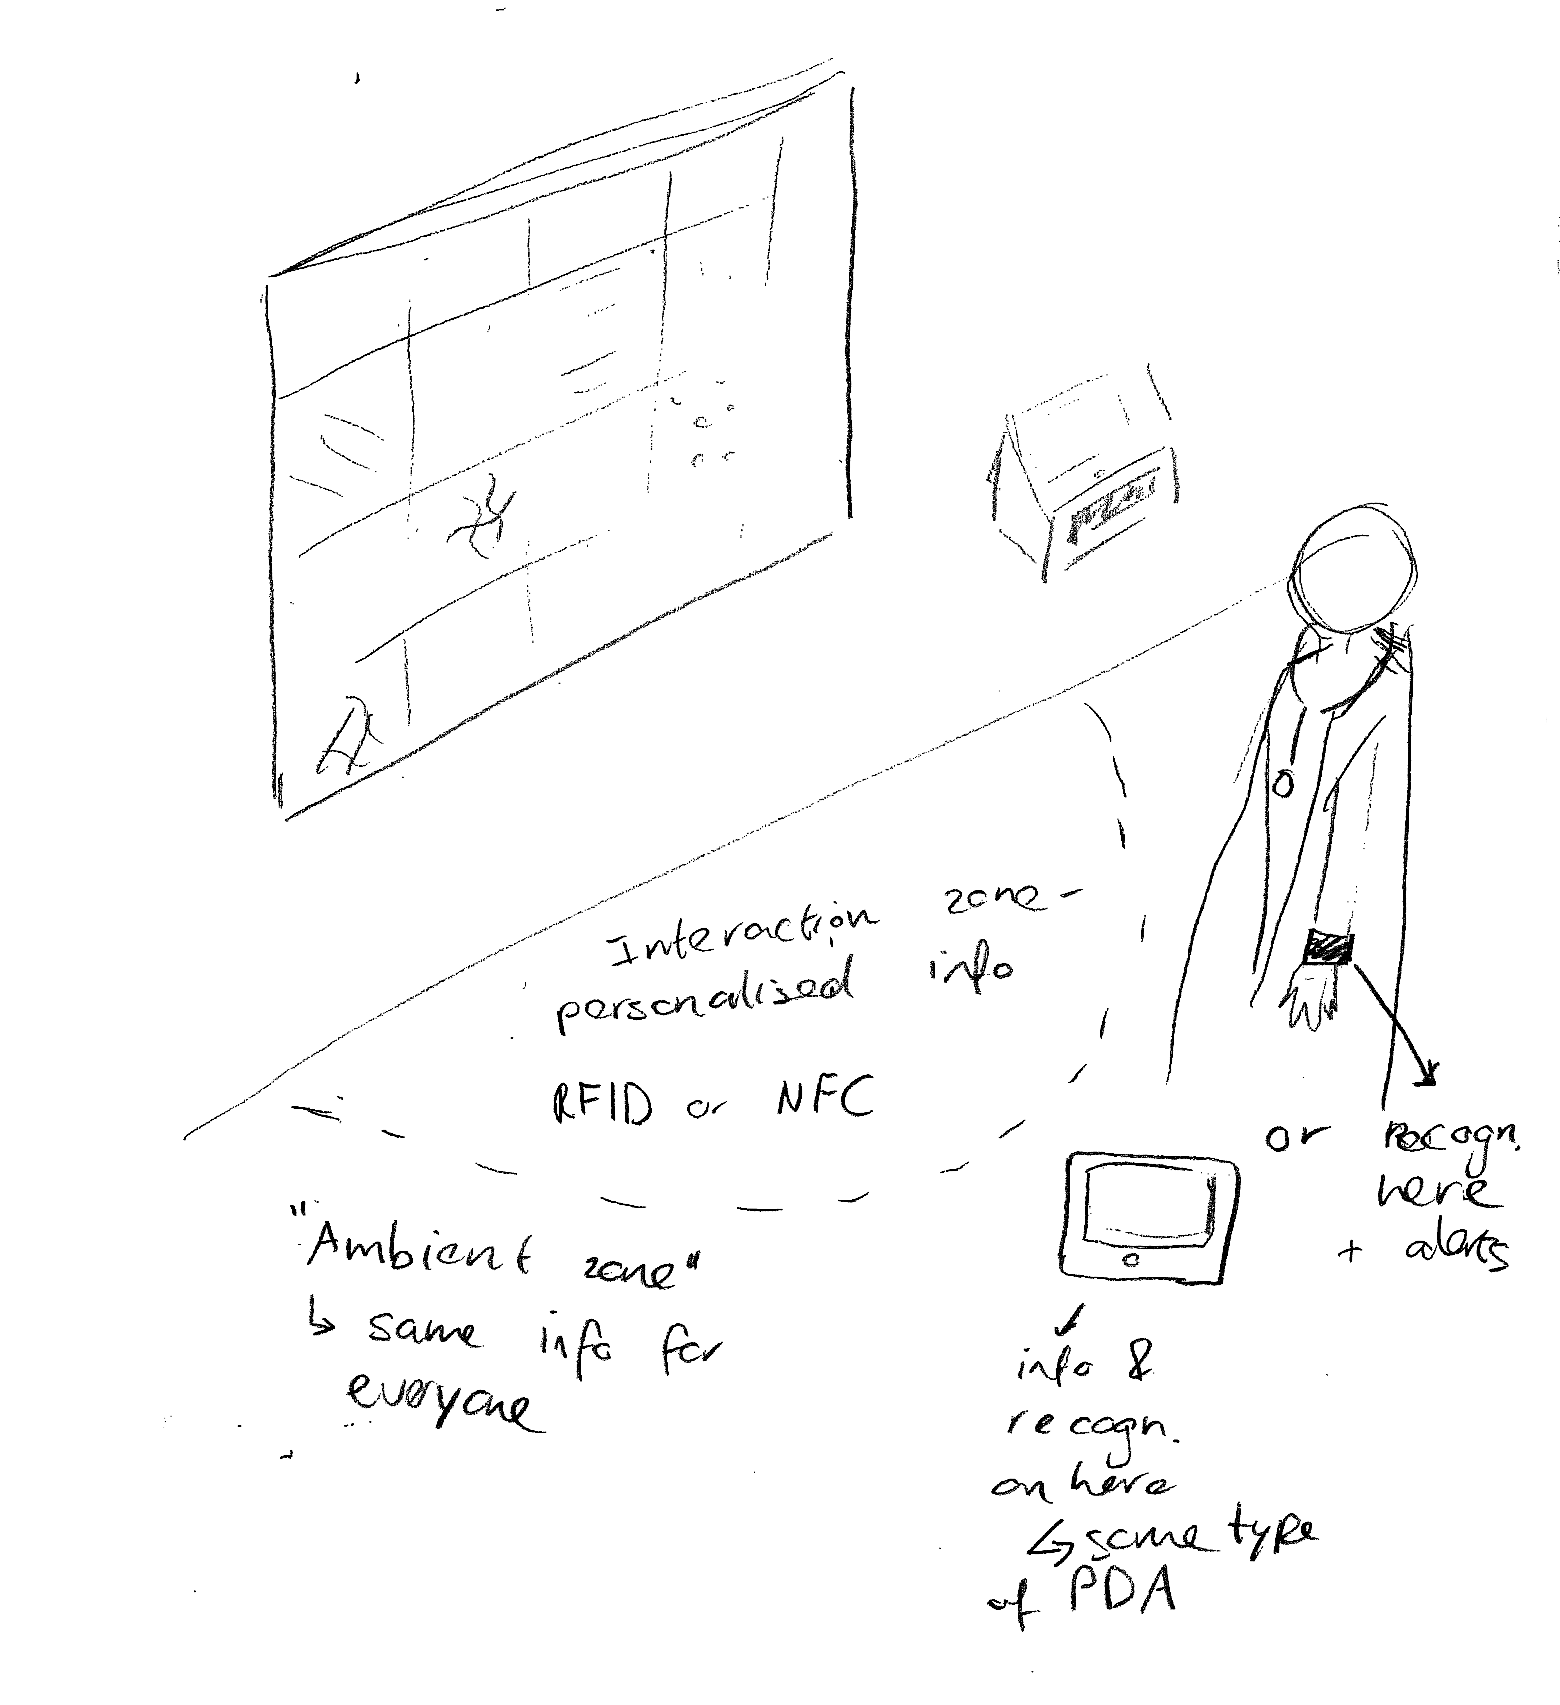 Interaction zone -
personalised info
RFID or NFC
"Ambient zone"
↳ same info for
everyone
or recogn.
here
+ alerts
info &
recogn.
on here
↳ some type
of PDA